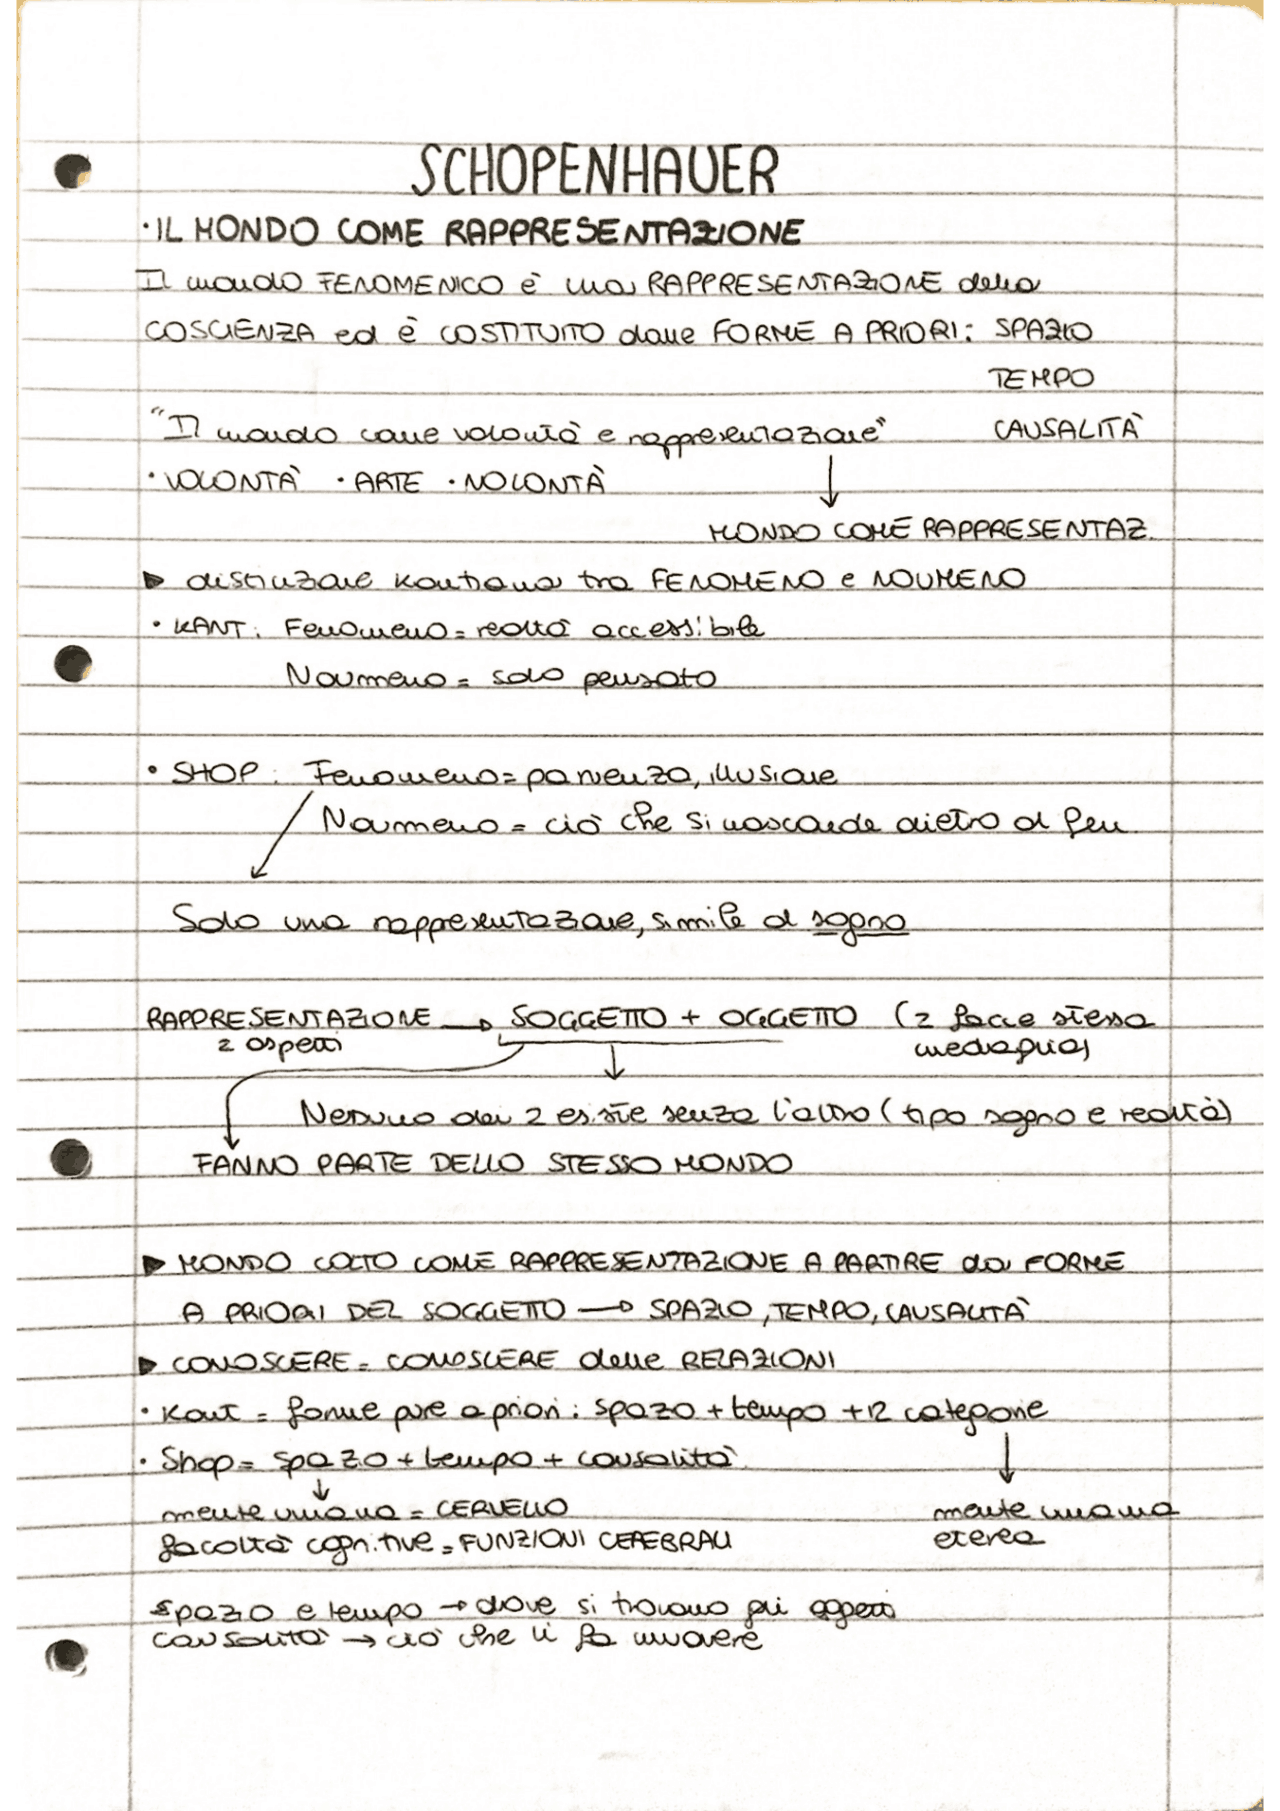 SCHOPENHAUER
· IL MONDO COME RAPPRESENTAZIONE
Il mondo FENOMENICO è una RAPPRESENTAZIONE della
COSCIENZA ed è COSTITUITO dalle FORME A PRIORI: SPAZIO
TEMPO
"Il mondo come volontà e rappresentazione" CAUSALITÀ
· VOLONTÀ · ARTE · NOLONTÀ
↓
MONDO COME RAPPRESENTAZ.
▶ distinzione kantiana tra FENOMENO e NOUMENO
· KANT: Fenomeno = realtà accessibile
Noumeno = solo pensato
· SHOP: Fenomeno = parvenza, illusione
Noumeno = ciò che si nasconde dietro al fen.
Solo una rappresentazione, simile al sogno
RAPPRESENTAZIONE → SOGGETTO + OGGETTO (2 facce stessa
2 aspetti medaglia)
Nessuno dei 2 esiste senza l'altro (tipo sogno e realtà)
FANNO PARTE DELLO STESSO MONDO
▶ MONDO COLTO COME RAPPRESENTAZIONE A PARTIRE da FORME
A PRIORI DEL SOGGETTO → SPAZIO, TEMPO, CAUSALITÀ
▶ CONOSCERE = CONOSCERE delle RELAZIONI
· Kant = forme pure a priori: spazio + tempo + 12 categorie
· Shop = spazio + tempo + causalità
mente umana = CERVELLO mente umana
facoltà cognitive = FUNZIONI CEREBRALI eterea
spazio e tempo → dove si trovano gli oggetti
causalità → ciò che li fa muovere